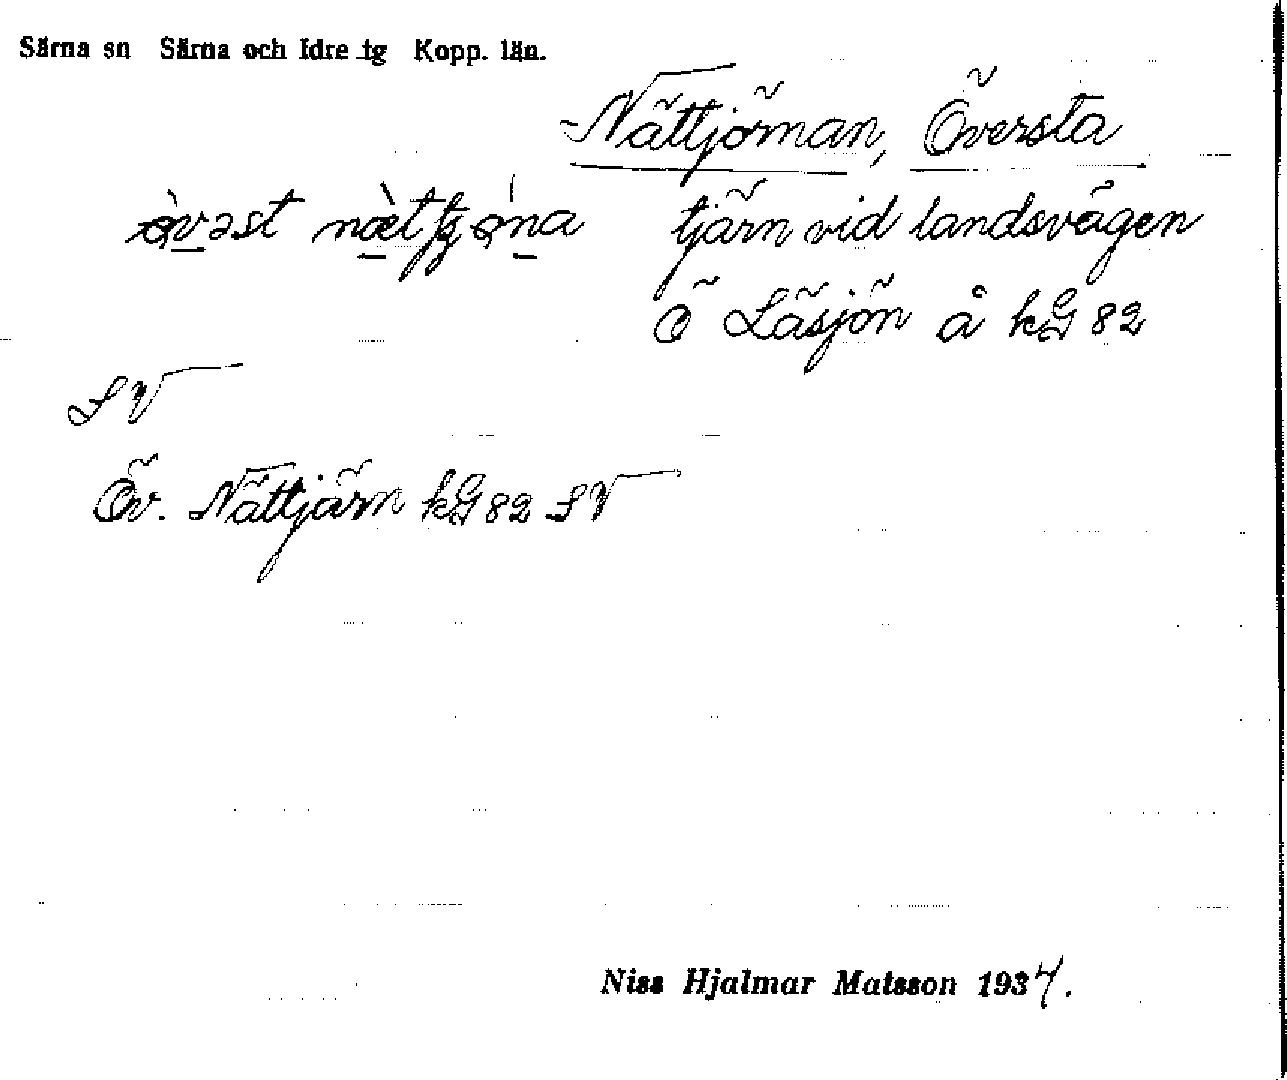 Särna sn Särna och Idre tg Kopp. län.
-Nättjöman, Översta
tjärn vid landsvägen
Ö Läsjön å kG 82
SV
Öv. Nättjärn kG 82 SV
Niss Hjalmar Matsson 1934.